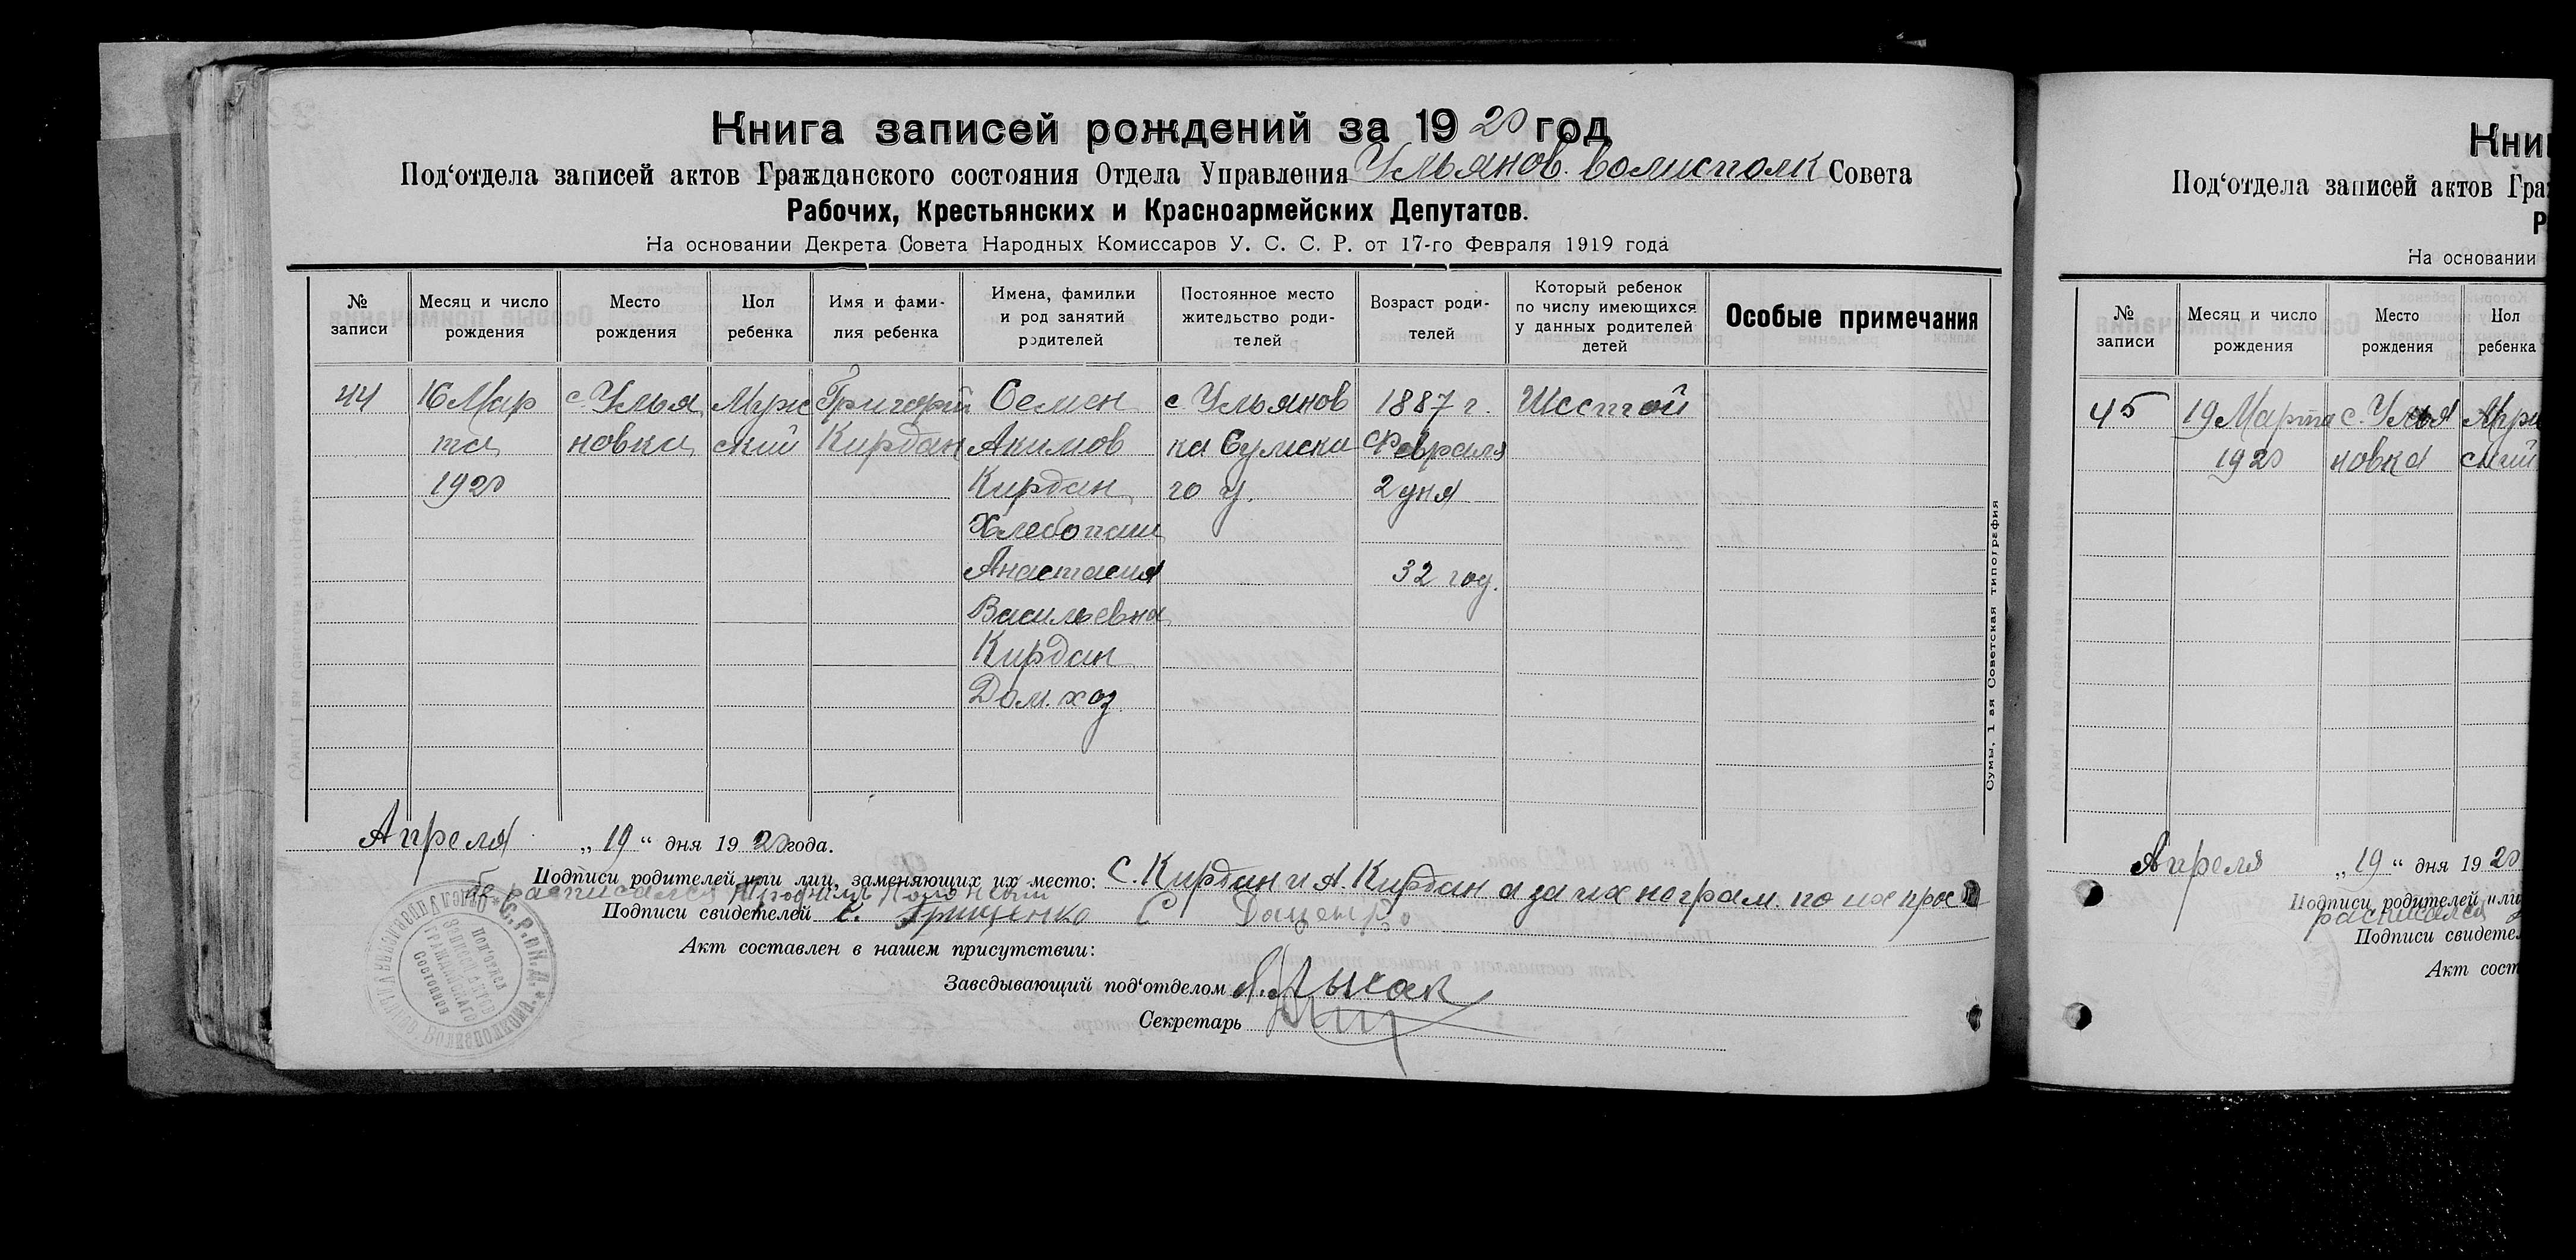 Книга записей рождений за 1920 год
Под‘отдела записей актов Гражданского состояния Отдела Управления Ульянов. волисполк Совета
Рабочих, Крестьянских и Красноармейских Депутатов.
На основании Декрета Совета Народных Комиссаров У. С. С. Р. от 17-го Февраля 1919 года
№ записи
Месяц и число рождения
Место рождения
Пол ребенка
Имя и фами-
лия ребенка
Имена, фамилии
и род занятий
родителей
Постоянное место
жительство роди-
телей
Возраст роди-
телей
Который ребенок
по числу имеющихся
у данных родителей
детей
Особые примечания
44
16 Мар
та
1920
с. Улья
новка
Муж
ский
Григорий
Кирдан
Семен
Акимов
Кирдан
Хлебопаш
Анастасия
Васильевна
Кирдан
Дом. хоз
с. Ульянов
ка Сумска
го у.
1887 г.
Февраля
2 дня
32 год.
Шестой
Сумы, 1 ая Советская типография
Апреля „19“ дня 1920 года.
Подписи родителей или лиц, заменяющих их место: С. Кирдан и А. Кирдан а за их неграм. по их прос
бе расписался
Подписи свидетелей С. Грищенко С Доценко
Акт составлен в нашем присутствии:
Заведывающий под‘отделом
Секретарь
Под‘отдел
Записи актов
Гражданского
Состояния
Кни
Под‘отдела записей актов Гра
Р
На основании
№ записи
Месяц и число рождения
Место рождения
Пол ребенка
45
19 Марта
1920
с. Улья
новка
ский
Апреля „19“ дня 1920
Подписи родителей или
расписался
Подписи свидете
Акт сост